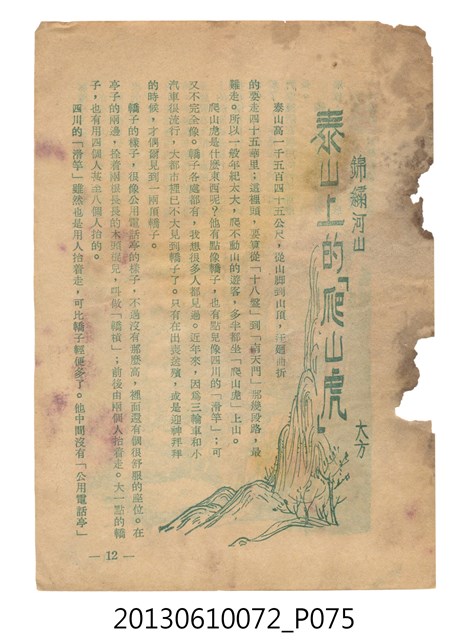 錦繡河山
泰山上的「爬山虎」
大方
泰山高一千五百四十五公尺，從山腳到山頂，迂迴曲折
的要走四十五華里；這裡頭，要算從「十八盤」到「南天門」那幾段路，最
難走。所以一般年紀太大，爬不動山的遊客，多半都坐「爬山虎」上山。
爬山虎是什麼東西呢？他有點像轎子，也有點兒像四川的「滑竿」；可
又不完全像。轎子各處都有，我想很多人都見過。近年來，因為三輪車和小
汽車很流行，大都市裡已不大見到轎子了。只有在出喪盆殯，或是迎神拜拜
的時候，才偶爾見到一兩頂轎子。
轎子的樣子，很像公用電話亭的樣子，不過沒有那麼高，裡面還有個很舒服的座位。在
亭子的兩邊，拴着兩根長長的木頭棍兒，叫做「轎槓」；前後由兩個人抬着走。大一點的轎
子，也有用四個人甚至八個人抬的。
四川的「滑竿」雖然也是用人抬着走，可比轎子輕便多了。他中間沒有「公用電話亭」
— 12 —
20130610072_P075